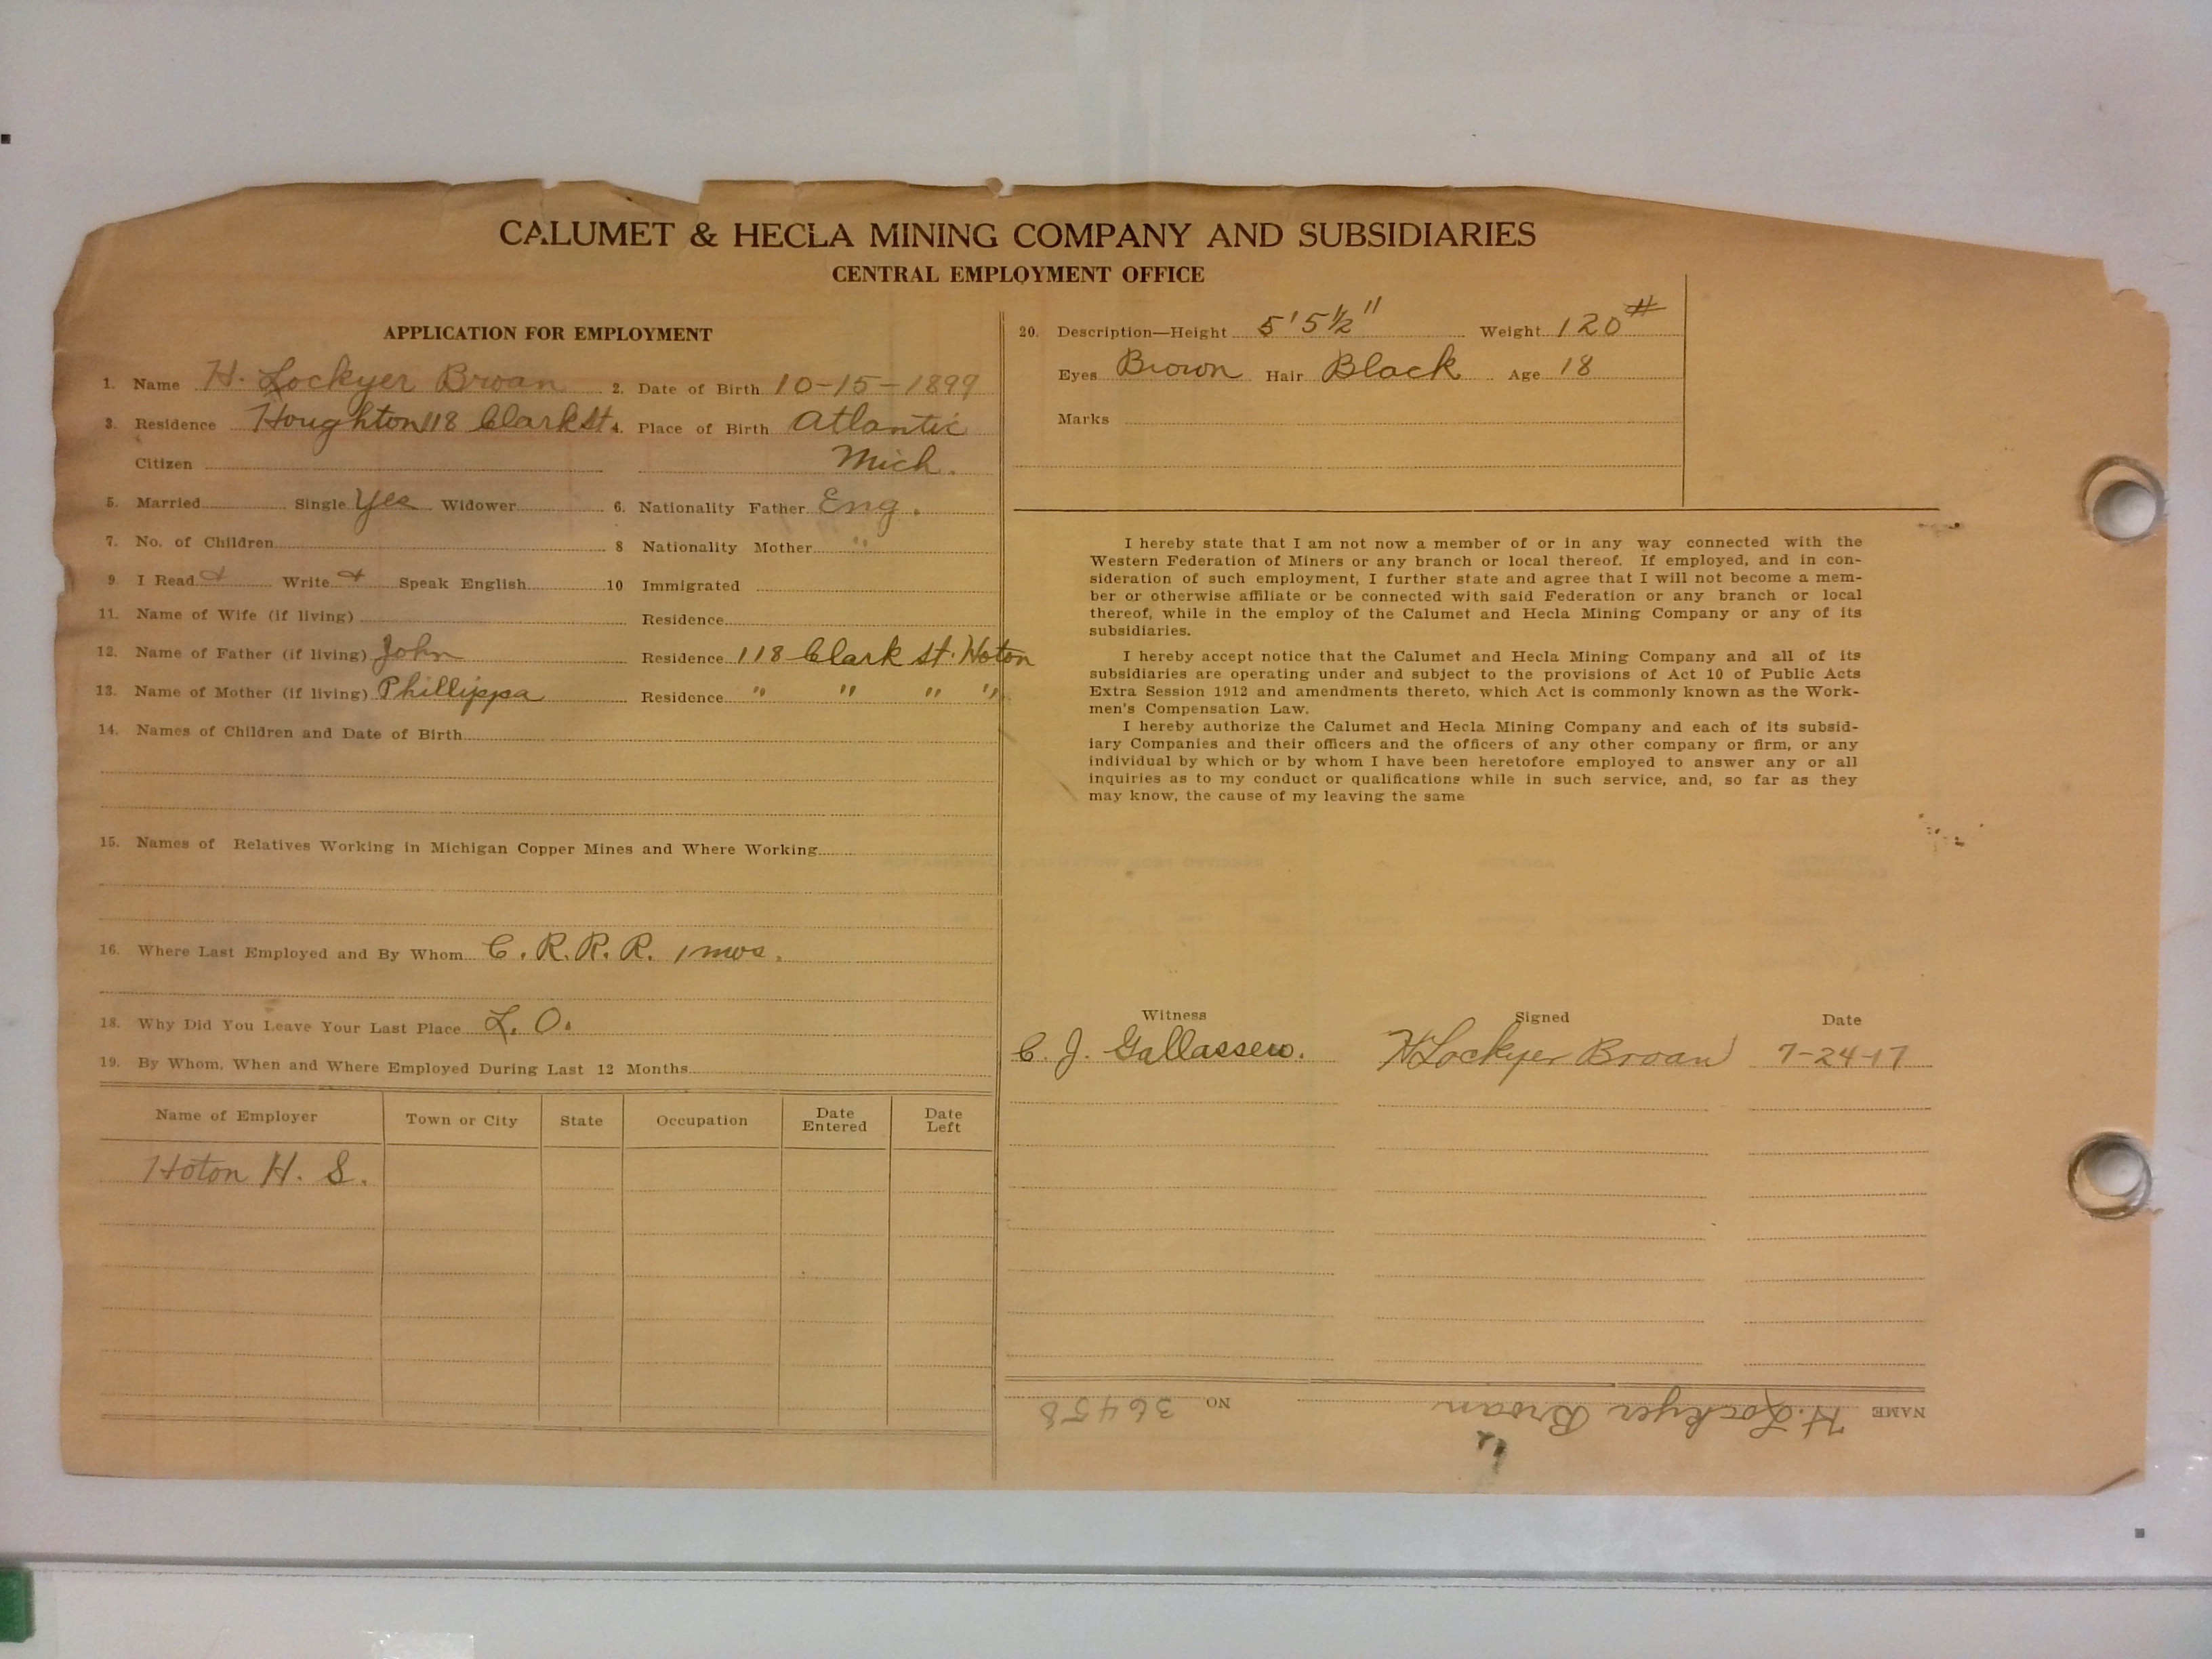 CALUMET & HECLA MINING COMPANY AND SUBSIDIARIES
CENTRAL EMPLOYMENT OFFICE
APPLICATION FOR EMPLOYMENT
1. Name H. Lockyer Broan 2. Date of Birth 10-15-1899
3. Residence Houghton 118 Clark St. 4. Place of Birth Atlantic
Citizen Mich.
5. Married Single Yes Widower 6. Nationality Father Eng.
7. No. of Children 8 Nationality Mother "
9. I Read Write Speak English 10 Immigrated
11. Name of Wife (if living) Residence
12. Name of Father (if living) John Residence 118 Clark St. Hoton
13. Name of Mother (if living) Phillippa Residence " " " "
14. Names of Children and Date of Birth
15. Names of Relatives Working in Michigan Copper Mines and Where Working
16. Where Last Employed and By Whom C. R. R. R. 1 mos.
18. Why Did You Leave Your Last Place L. O.
19. By Whom, When and Where Employed During Last 12 Months
Name of Employer Town or City State Occupation Date Entered Date Left
Hoton H. S.
20. Description—Height 5' 5½" Weight 120#
Eyes Brown Hair Black Age 18
Marks
I hereby state that I am not now a member of or in any way connected with the
Western Federation of Miners or any branch or local thereof. If employed, and in con-
sideration of such employment, I further state and agree that I will not become a mem-
ber or otherwise affiliate or be connected with said Federation or any branch or local
thereof, while in the employ of the Calumet and Hecla Mining Company or any of its
subsidiaries.
I hereby accept notice that the Calumet and Hecla Mining Company and all of its
subsidiaries are operating under and subject to the provisions of Act 10 of Public Acts
Extra Session 1912 and amendments thereto, which Act is commonly known as the Work-
men's Compensation Law.
I hereby authorize the Calumet and Hecla Mining Company and each of its subsid-
iary Companies and their officers and the officers of any other company or firm, or any
individual by which or by whom I have been heretofore employed to answer any or all
inquiries as to my conduct or qualifications while in such service, and, so far as they
may know, the cause of my leaving the same
Witness Signed Date
C. J. H Lockyer Broan 7-24-17
NAME H. Lockyer Broan NO 36458